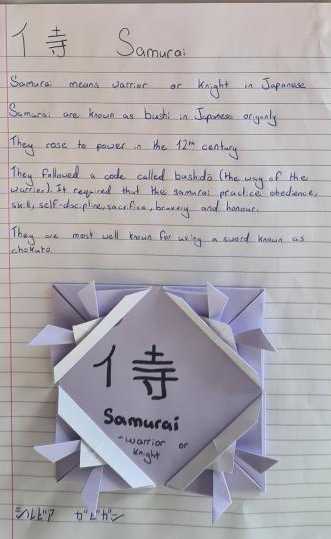 侍 Samurai
Samurai means warrior or Knight in Japanese
Samurai are known as bushi in Japenese origonly
They rose to power in the 12th century
They followed a code called bushido (the way of the
warrior). It required that the samurai practice obedience,
skill, self-discipline, sacrifice, bravery and honour.
They are most well known for using a sword known as
chokuto.
侍
Samurai
-warrior or
Knight